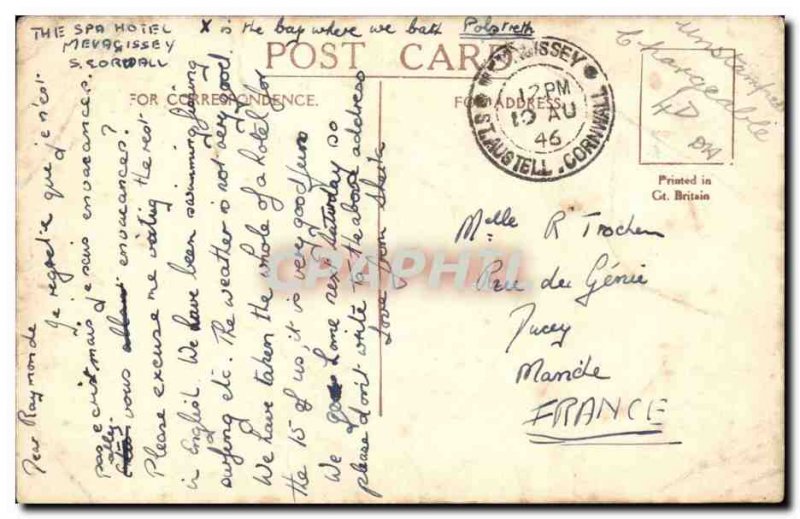 THE SPA HOTEL
MEVAGISSEY
S. CORWALL
X is the bay where we bath Polstreth
POST CARD
FOR CORRESPONDENCE.
FOR ADDRESS
MEVAGISSEY
12 PM
10 AU
46
ST. AUSTELL. CORNWALL
unstamped
Chargeable
4D
Printed in
Gt. Britain
Dear Raymonde
Je regrette que je n'est
pas ecrit mais je suis en vacances.
vous en vacances?
Please excuse me writing the rest
in English. We have been swimming, fishing
surfing etc. The weather is not very good.
We have taken the whole of a hotel for
the 15 of us, it is very good fun
We home next Saturday so
please don't write to the above address
Love from Sheila
Melle R Trochen
Rue du Génie
Ducey
Manche
FRANCE
CPAPHIL